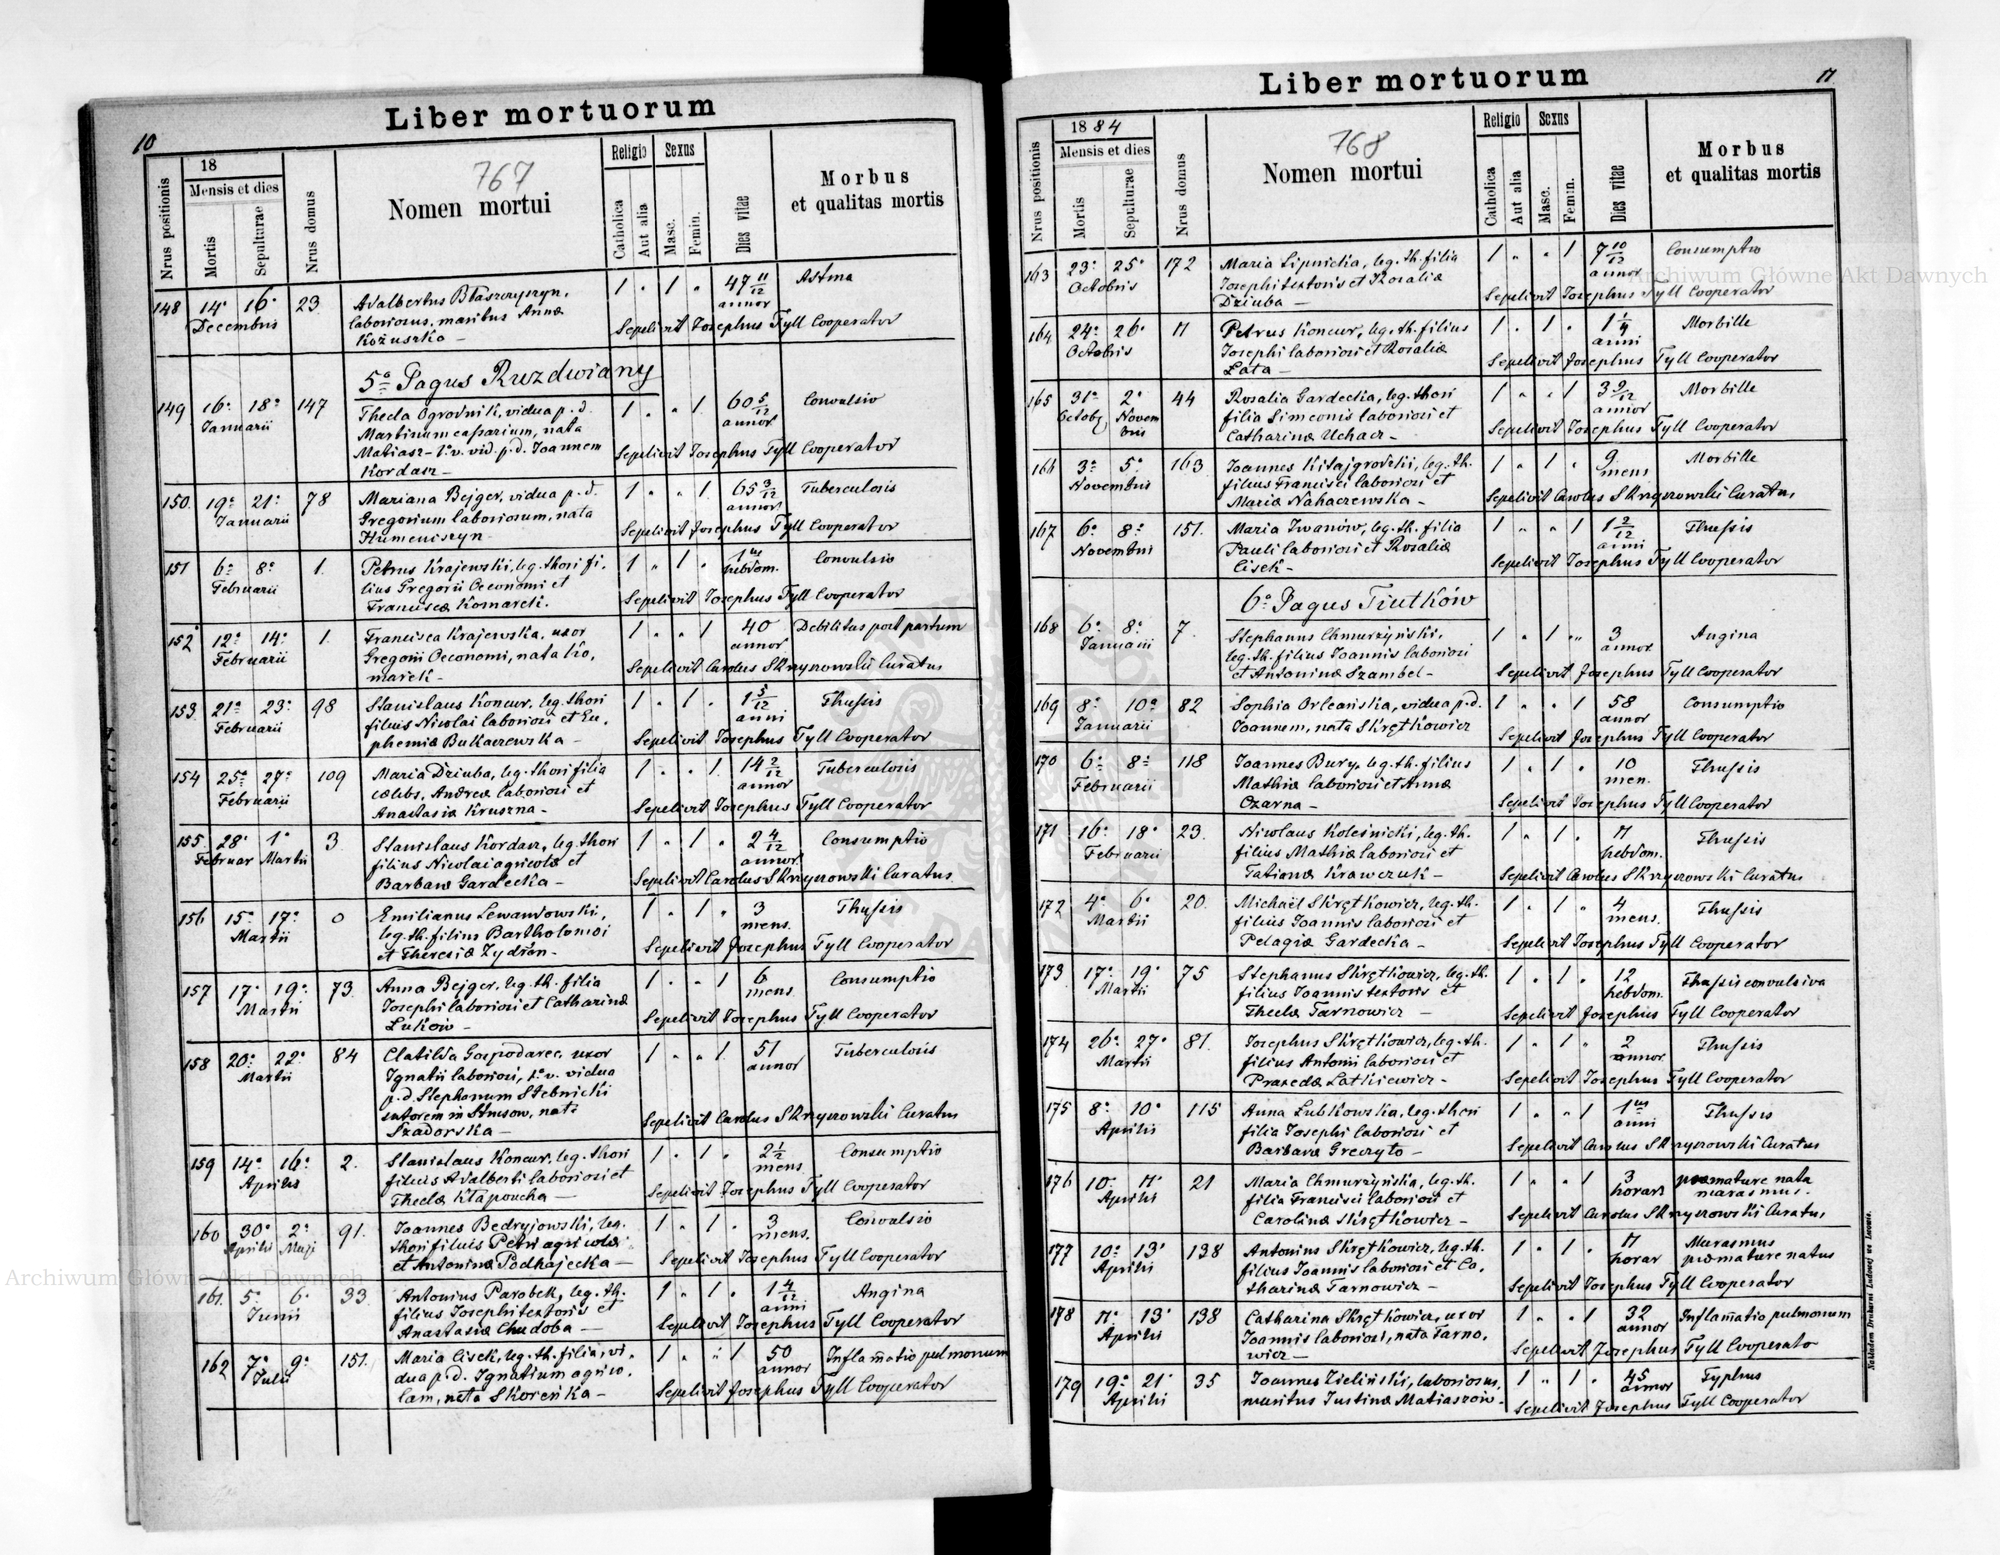 10
Liber mortuorum
Nrus positionis
18
Mensis et dies
Mortis
Sepulturae
Nrus domus
767
Nomen mortui
Religio
Catholica
Aut alia
Sexus
Masc.
Femin.
Dies vitae
Morbus
et qualitas mortis
148 14 16 23 Adalbertus Błaszczyszyn, 1 " 1 " 47 11/12 Astma
Decembris laboriosus, maritus Annæ annor
Kożuszko — Sepelivit Josephus Tyll Cooperator
5o Pagus Ruzdwiany
149 16 18 147 Thecla Ogrodnik, vidua p. d. 1 " " 1 60 5/12 Convulsio
Januarii Martinum cassarium, nata annor
Matiasz - 1o v. vid. p. d. Joannem Sepelivit Josephus Tyll Cooperator
Kordasz —
150 19 21 78 Mariana Bejger, vidua p. d. 1 " " 1 65 3/12 Tuberculosis
Januarii Gregorium laboriosum, nata annor
Humeniszyn — Sepelivit Josephus Tyll Cooperator
151 6 8 1. Petrus Krajewski, leg. thori fi- 1 " 1 " 1 Convulsio
Februarii lius Gregorii Oeconomi et hebdom.
Franciscæ Komarek. Sepelivit Josephus Tyll Cooperator
152 12 14 1. Francisca Krajewska, uxor 1 " " 1 40 Debilitas post partum
Februarii Gregorii Oeconomi, nata Ko- annor
marek — Sepelivit Carolus Skrzyszowski Curatus
153 21 23 98 Stanislaus Koncur, leg. thori 1 " 1 " 1 5/12 Thussis
Februarii filius Nicolai laboriosi et Eu- anni
phemiæ Bukaczewska — Sepelivit Josephus Tyll Cooperator
154 25 27 109 Maria Dziuba, leg. thori filia 1 " " 1 14 2/12 Tuberculosis
Februarii cœlebs, Andreæ laboriosi et annor
Anastasiæ Kruszna — Sepelivit Josephus Tyll Cooperator
155 28 1 3 Stanislaus Kordasz, leg. thori 1 " 1 " 2 4/12 Consumptio
Februar Martii filius Nicolai agricolæ et annor
Barbaræ Gardecka — Sepelivit Carolus Skrzyszowski Curatus
156 15 17 0 Emilianus Lewandowski, 1 " 1 " 3 Thussis
Martii leg. th. filius Bartholomæi mens.
et Theresiæ Zydron — Sepelivit Josephus Tyll Cooperator
157 17 19 73. Anna Bejger, leg. th. filia 1 " " 1 6 Consumptio
Martii Josephi laboriosi et Catharinæ mens
Luków — Sepelivit Josephus Tyll Cooperator
158 20 22 84 Clatilda Gospodarec, uxor 1 " " 1 51 Tuberculosis
Martii Ignatii laboriosi, 1o v. vidua annor
p. d. Stephanum Stebnicki
sutorem in Strusow, nata
Szadorska — Sepelivit Carolus Skrzyszowski Curatus
159 14 16 2. Stanislaus Koncur, leg. thori 1 " 1 " 2 1/2 Consumptio
Aprilis filius Adalberti laboriosi et mens
Theclæ Kłapoucha — Sepelivit Josephus Tyll Cooperator
160 30 2 91. Joannes Bedryjowski, leg. 1 " 1 " 3 Convulsio
Aprilis Maji thori filius Petri agricolæ mens.
et Antoninæ Podhajecka — Sepelivit Josephus Tyll Cooperator
161. 5 6 33 Antonius Parobek, leg. th. 1 " 1 " 1 4/12 Angina
Junii filius Josephi textoris et anni
Anastasiæ Chudoba — Sepelivit Josephus Tyll Cooperator
162 7 9 151. Maria Cisek, leg. th. filia, vi- 1 " " 1 50 Inflam̄atio pulmonum
Julii dua p. d. Ignatium agrico- annor
lam, nata Skoreńka — Sepelivit Josephus Tyll Cooperator
Liber mortuorum
11
Nrus positionis
1884
Mensis et dies
Mortis
Sepulturae
Nrus domus
768
Nomen mortui
Religio
Catholica
Aut alia
Sexus
Masc.
Femin.
Dies vitae
Morbus
et qualitas mortis
163 23 25 172 Maria Lipnicka, leg. th. filia 1 " " 1 7 10/12 Consumptio
Octobris Josephi textoris et Rosaliæ annor
Dziuba — Sepelivit Josephus Tyll Cooperator
164 24 26 11 Petrus Koncur, leg. th. filius 1 " 1 " 1 1/4 Morbille
Octobris Josephi laboriosi et Rosaliæ anni
Łata — Sepelivit Josephus Tyll Cooperator
165 31 2 44 Rosalia Gardecka, leg. thori 1 " " 1 3 9/12 Morbille
Octob Novem filia Simeonis laboriosi et annor
bris Catharinæ Uchacz — Sepelivit Josephus Tyll Cooperator
166 3 5 163 Joannes Kitajgrodzki, leg. th. 1 " 1 " 9 Morbille
Novembris filius Francisci laboriosi et mens
Mariæ Nahaczewska — Sepelivit Carolus Skrzyszowski Curatus
167 6 8 151. Maria Iwanów, leg. th. filia 1 " " 1 1 2/12 Thussis
Novembris Pauli laboriosi et Rosaliæ anni
Cisek — Sepelivit Josephus Tyll Cooperator
6o Pagus Tiutków
168 6 8 7. Stephanus Chmurzyński, 1 " 1 " 3 Angina
Januarii leg. th. filius Joannis laboriosi annor
et Antoninæ Szambel — Sepelivit Josephus Tyll Cooperator
169 8 10 82 Sophia Orleańska, vidua p. d. 1 " " 1 58 Consumptio
Januarii Joannem, nata Skrętkowicz annor
Sepelivit Josephus Tyll Cooperator
170 6 8 118 Joannes Bury, leg. th. filius 1 " 1 " 10 Thussis
Februarii Mathiæ laboriosi et Annæ men.
Czarna — Sepelivit Josephus Tyll Cooperator
171 16 18 23. Nicolaus Koleśnicki, leg. th. 1 " 1 " 11 Thussis
Februarii filius Mathiæ laboriosi et hebdom.
Tatianæ Krawczuk — Sepelivit Carolus Skrzyszowski Curatus
172 4 6 20. Michaël Skrętkowicz, leg. th. 1 " 1 " 4 Thussis
Martii filius Joannis laboriosi et mens.
Pelagiæ Gardecka — Sepelivit Josephus Tyll Cooperator
173 17 19 75 Stephanus Skrętkowicz, leg. th. 1 " 1 " 12 Thussis convulsiva
Martii filius Joannis textoris et hebdom.
Theclæ Tarnowicz — Sepelivit Josephus Tyll Cooperator
174 26 27 81. Josephus Skrętkowicz, leg. th. 1 " 1 " 2 Thussis
Martii filius Antonii laboriosi et annor
Praxedæ Latkiewicz — Sepelivit Josephus Tyll Cooperator
175 8 10 115 Anna Lubkowska, leg. thori 1 " " 1 1 Thussis
Aprilis filia Josephi laboriosi et anni
Barbaræ Greczyło — Sepelivit Carolus Skrzyszowski Curatus
176 10 11 21 Maria Chmurzyńska, leg. th. 1 " " 1 3 præmature nata
Aprilis filia Francisci laboriosi et horar marasmus.
Carolinæ Skrętkowicz — Sepelivit Carolus Skrzyszowski Curatus
177 10 13 138 Antonius Skrętkowicz, leg. th. 1 " 1 " 11 Marasmus
Aprilis filius Joannis laboriosi et Ca- horar præmature natus
tharinæ Tarnowicz — Sepelivit Josephus Tyll Cooperator
178 11 13 138 Catharina Skrętkowicz, uxor 1 " " 1 32 Inflam̄atio pulmonum
Aprilis Joannis laboriosi, nata Tarno- annor
wicz — Sepelivit Josephus Tyll Cooperato
179 19 21 35 Joannes Zieliński, laboriosus, 1 " 1 " 45 Typhus
Aprilis maritus Justinæ Matiaszów — annor
Sepelivit Josephus Tyll Cooperator
Nakładem Drukarni Ludowej we Lwowie.
Archiwum Główne Akt Dawnych
Archiwum Główne Akt Dawnych